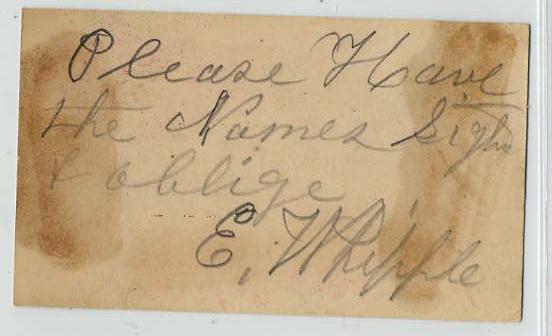 Please Have
the Names Sign
& oblige
E. Whipple